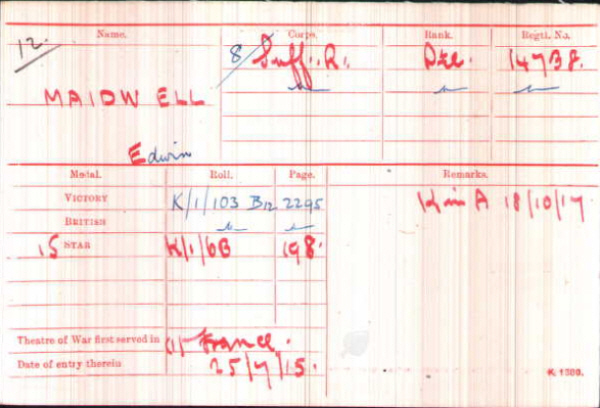 12.
Name. Corps. Rank. Regtl. No.
8 Suff. R. Pte. 14738.
MAIDWELL
Edwin
Medal. Roll. Page. Remarks.
VICTORY K/1/103 B12 2295 K in A 18/10/17
BRITISH
15 STAR K/1/6B 198.
Theatre of War first served in (1) France.
Date of entry therein 25/7/15.
K 1380.